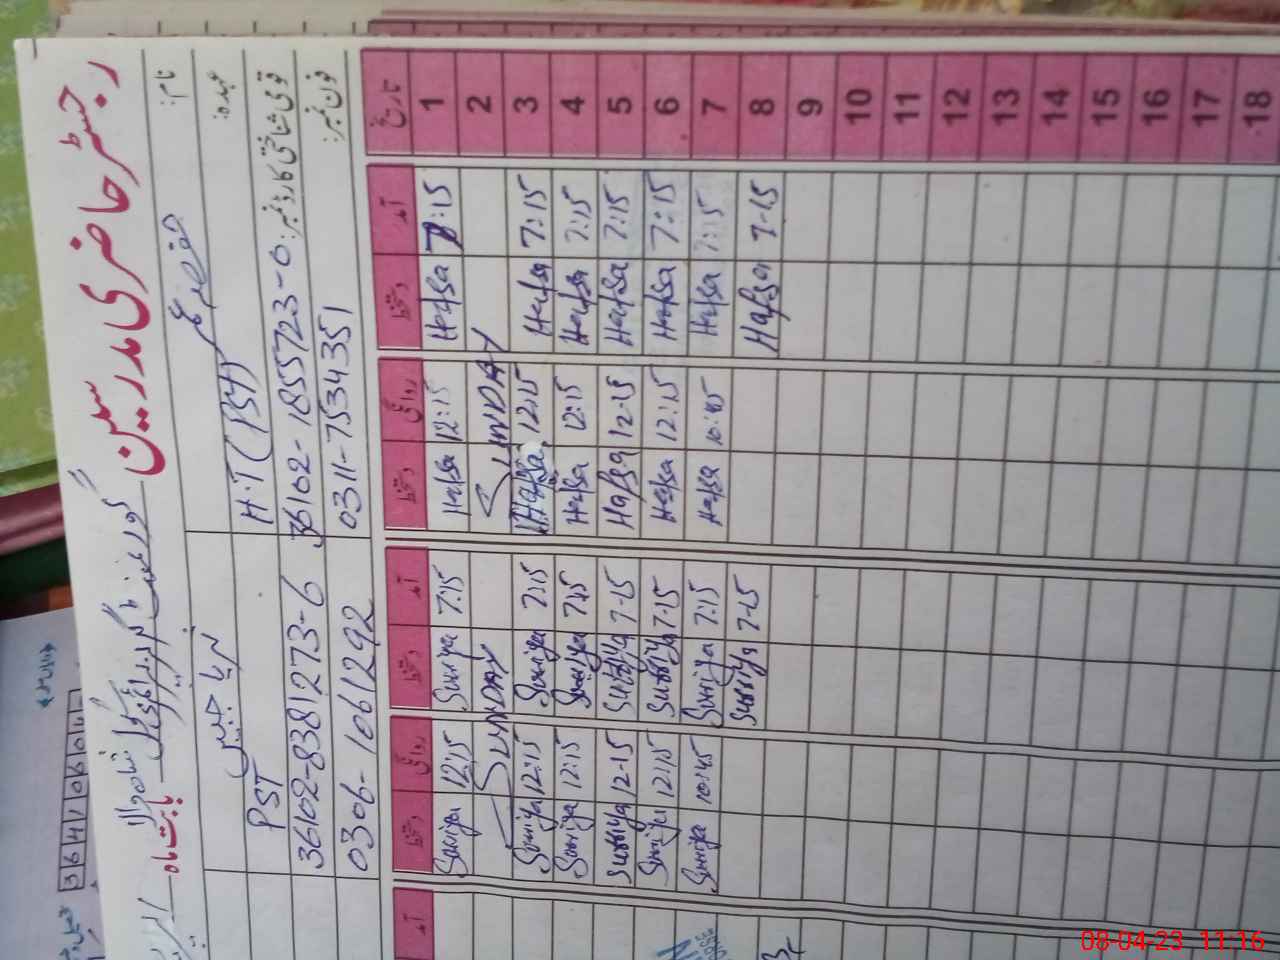 رجسٹر حاضری مدرسین
گورنمنٹ گرلز
بابت ماہ
نام:
عہدہ: H.T (PST) PST
قومی شناختی کارڈ نمبر: 36102-1855723-0 36102-8381273-6
فون نمبر: 0311-7534351 0306-1061292
تاریخ آمد دستخط روانگی دستخط آمد دستخط روانگی دستخط آمد
1 7:15 Hafsa 12:15 Hafsa 7:15 Surriya 12:15 Surriya
2 SUNDAY SUNDAY
3 7:15 Hafsa 12:15 Hafsa 7:15 Surriya 12:15 Surriya
4 7:15 Hafsa 12:15 Hafsa 7:15 Surriya 12:15 Surriya
5 7:15 Hafsa 12-15 Hafsa 7-15 Surriya 12-15 Surriya
6 7:15 Hafsa 12:15 Hafsa 7-15 Surriya 12:15 Surriya
7 7:15 Hafsa 10:45 Hafsa 7:15 Surriya 10:45 Surriya
8 7-15 Hafsa 7-15 Surriya
9
10
11
12
13
14
15
16
17
18
36410604
08-04-23 11:16